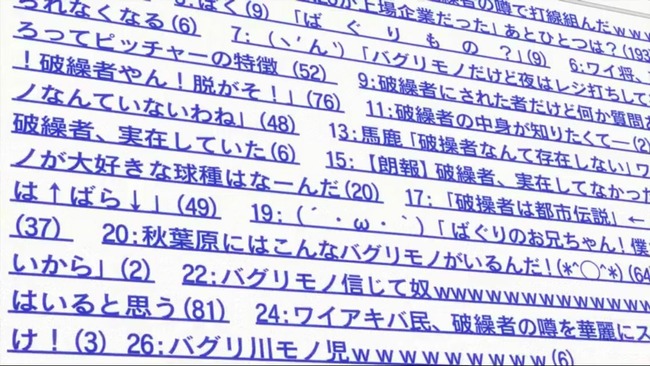 られなくなる(6)　　　:ぼく(9)　「ばぐりが上場企業だった」あとひとつは?(193
ろってピッチャーの特徴 (52)　7:(ヽ´ん`)「バグリモノだけど夜はレジ打ちして
「　ば　ぐ　り　も　の　?」(9)　6:ワイ将、
!破繰者やん!脱がそ!」(76)　9:破繰者にされた者だけど何か質問
ノなんていないわね」(48)　11:破繰者の中身が知りたくて―(2)
破繰者、実在していた(6)　13:馬鹿「破操者なんて存在しない」ワ
ノが大好きな球種はなーんだ(20)　15:【朗報】破繰者、実在してなかった
は↑ばら↓」(49)　17:「破操者は都市伝説」←
(37)　19:(´・ω・`)「ばぐりのお兄ちゃん!僕
20:秋葉原にはこんなバグリモノがいるんだ!(*^◯^*)(64
いから」(2)　22:バグリモノ信じて奴wwwwwwwwwwww
はいると思う(81)　24:ワイアキバ民、破繰者の噂を華麗にス
け!(3)　26:バグリ川モノ児wwwwwwwww(6)